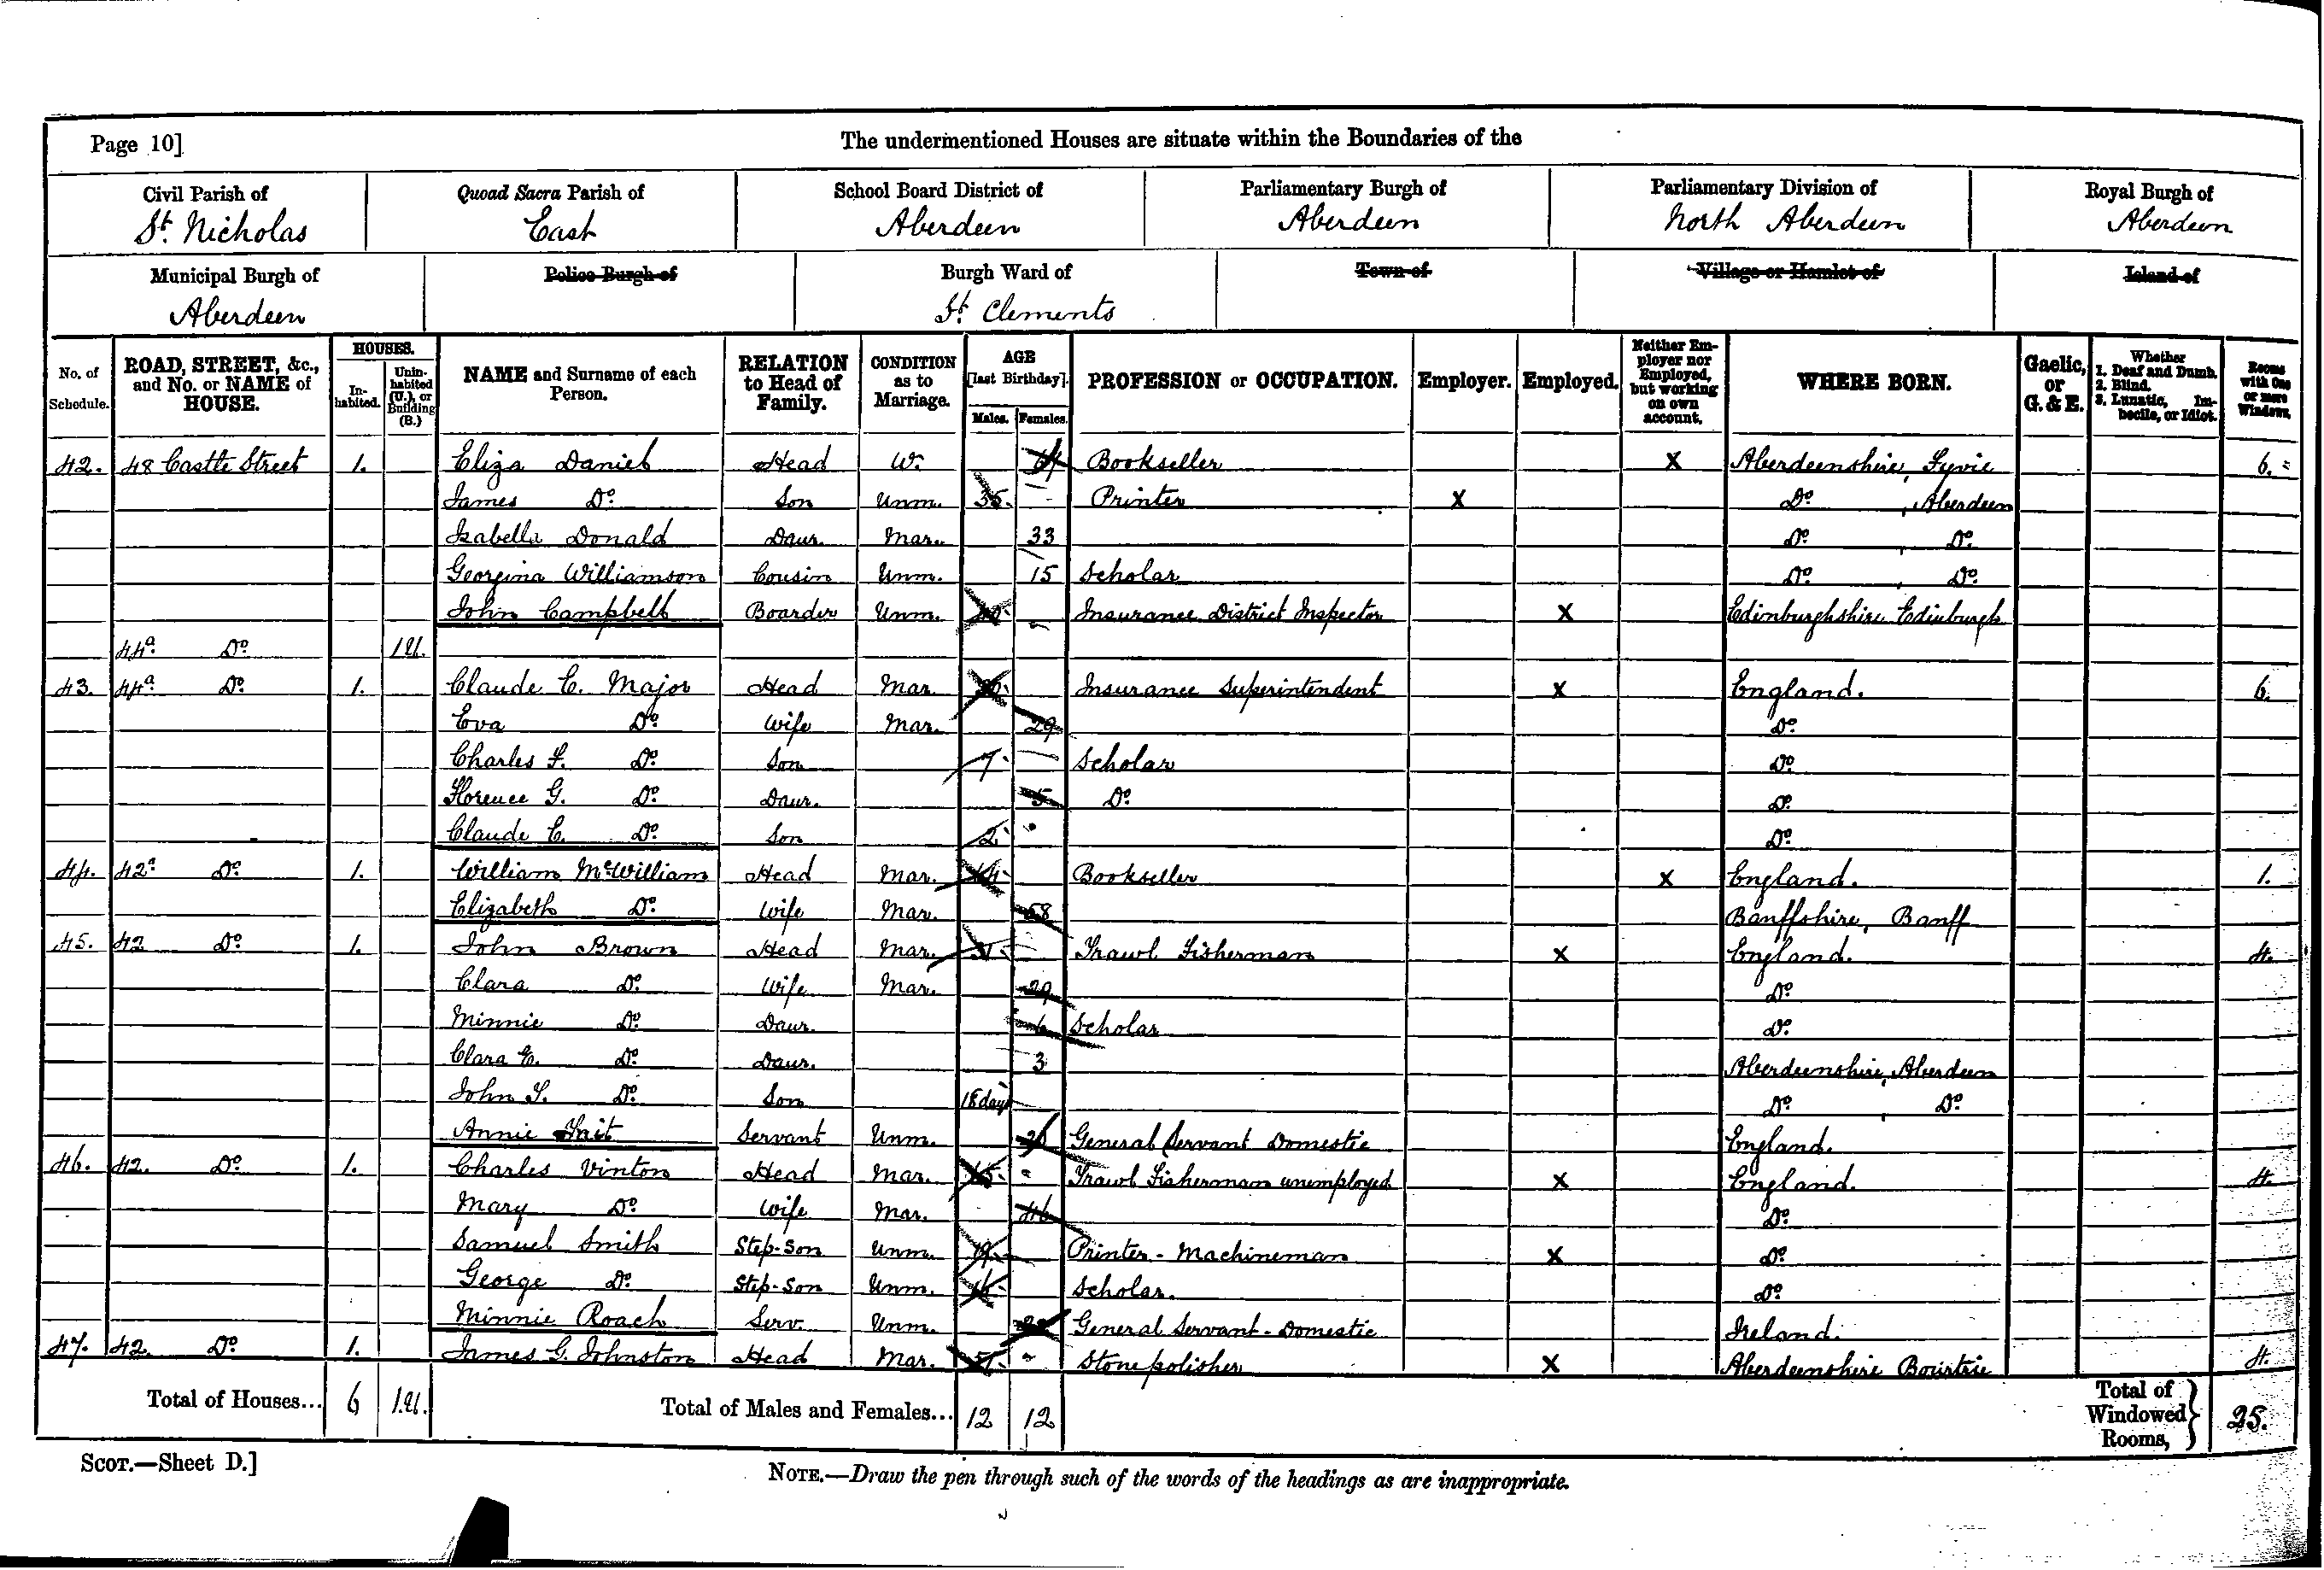 Page 10]
The undermentioned Houses are situate within the Boundaries of the
Civil Parish of Quoad Sacra Parish of School Board District of Parliamentary Burgh of Parliamentary Division of Royal Burgh of
St. Nicholas East Aberdeen Aberdeen North Aberdeen Aberdeen
Municipal Burgh of Police Burgh of Burgh Ward of Town of Village or Hamlet of Island of
Aberdeen St. Clements
No. of Schedule. ROAD, STREET, &c., and No. or NAME of HOUSE. HOUSES. Inhabited. Uninhabited (U.), or Building (B.) NAME and Surname of each Person. RELATION to Head of Family. CONDITION as to Marriage. AGE [last Birthday]. Males. Females. PROFESSION or OCCUPATION. Employer. Employed. Neither Employer nor Employed, but working on own account. WHERE BORN. Gaelic, or G. & E. Whether 1. Deaf and Dumb. 2. Blind. 3. Lunatic, Imbecile, or Idiot. Rooms with One or more Windows.
42. 48 Castle Street 1. Eliza Daniel Head W. Bookseller X Aberdeenshire, Fyvie 6.
James Do. Son Unm. 35. Printer X Do. , Aberdeen
Isabella Donald Daur. Mar. 33 Do. , Do.
Georgina Williamson Cousin Unm. 15 Scholar Do. , Do.
John Campbell Boarder Unm. Insurance District Inspector X Edinburghshire Edinburgh
44a. Do. 1U.
43. 44a Do. 1. Claude C. Major Head Mar. Insurance Superintendent X England. 6.
Eva Do. Wife Mar. 29 Do.
Charles F. Do. Son 7. Scholar Do.
Florence G. Do. Daur. 5 Do. Do.
Claude C. Do. Son 2. Do.
44. 42a Do. 1. William McWilliam Head Mar. Bookseller X England. 1.
Elizabeth Do. Wife Mar. 58 Banffshire, Banff
45. 42 Do. 1. John Brown Head Mar. 31. Trawl Fisherman X England. 4.
Clara Do. Wife Mar. 29 Do.
Minnie Do. Daur. 6 Scholar Do.
Clara E. Do. Daur. 3 Aberdeenshire, Aberdeen
John S. Do. Son 18 days Do. , Do.
Annie Tait Servant Unm. General Servant Domestic England.
46. 42. Do. 1. Charles Vinton Head Mar. 45. Trawl Fisherman unemployed X England. 4.
Mary Do. Wife Mar. 46 Do.
Samuel Smith Step-Son Unm. 19. Printer - Machineman X Do.
George Do. Step-Son Unm. 16. Scholar. Do.
Minnie Roach Serv. Unm. General Servant - Domestic Ireland.
47. 42. Do. 1. James G. Johnston Head Mar. 51. Stonepolisher X Aberdeenshire Bourtie 4.
Total of Houses... 6 1.U. Total of Males and Females... 12 12 Total of Windowed Rooms, 25.
SCOT.—Sheet D.]
NOTE.—Draw the pen through such of the words of the headings as are inappropriate.